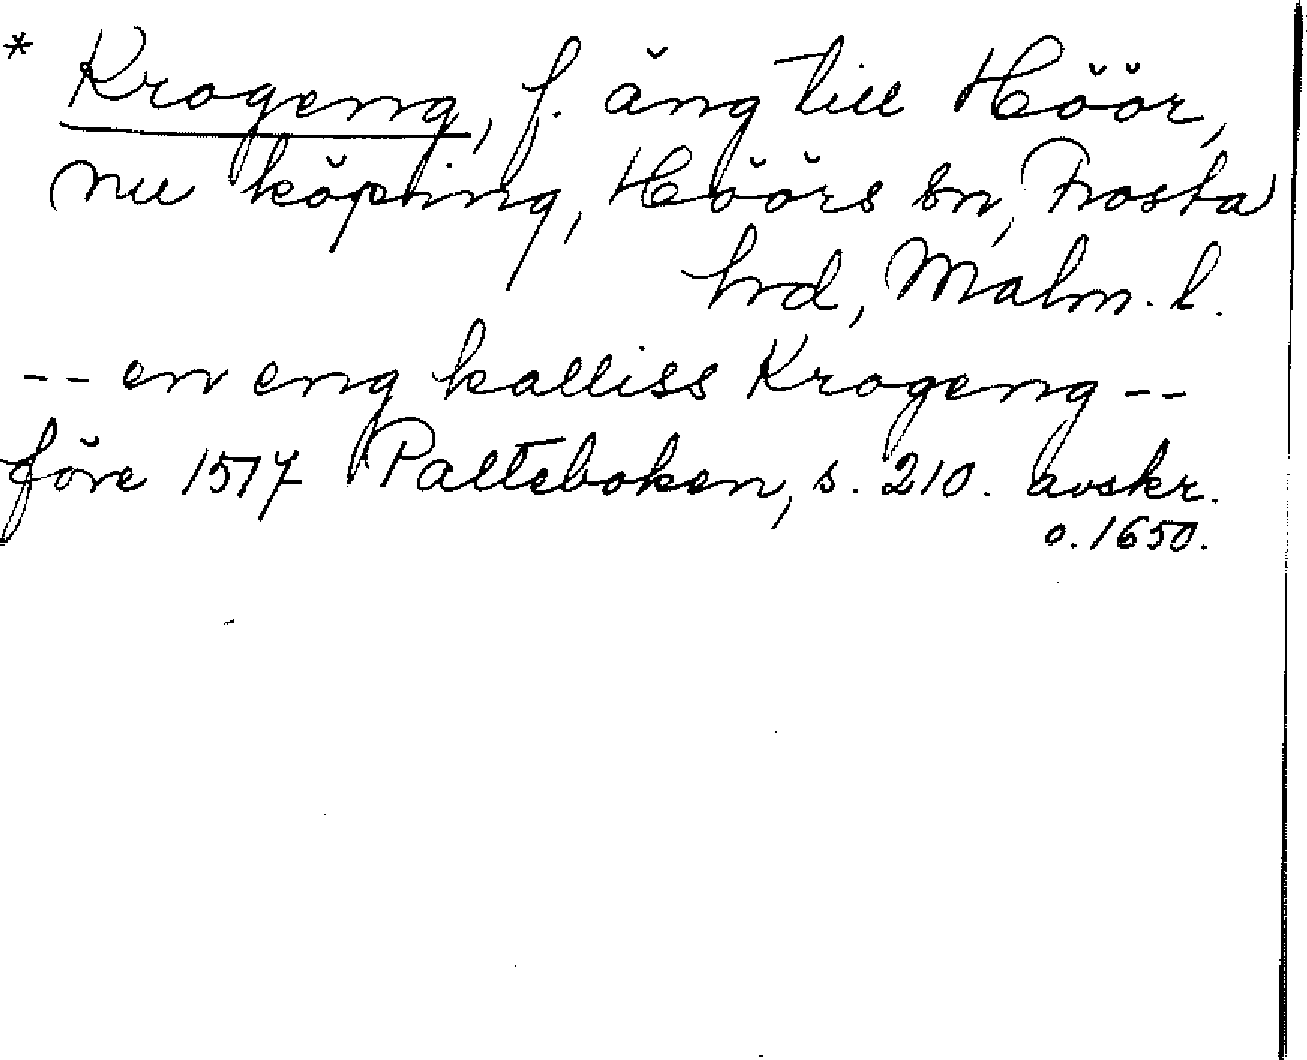 * Krogeng, f. äng till Höör,
nu köping, Höörs sn, Frosta
hrd, Malm. l.
-- en eng kalliss Krogeng --
före 1517 Palteboken, s. 210. avskr.
o. 1650.